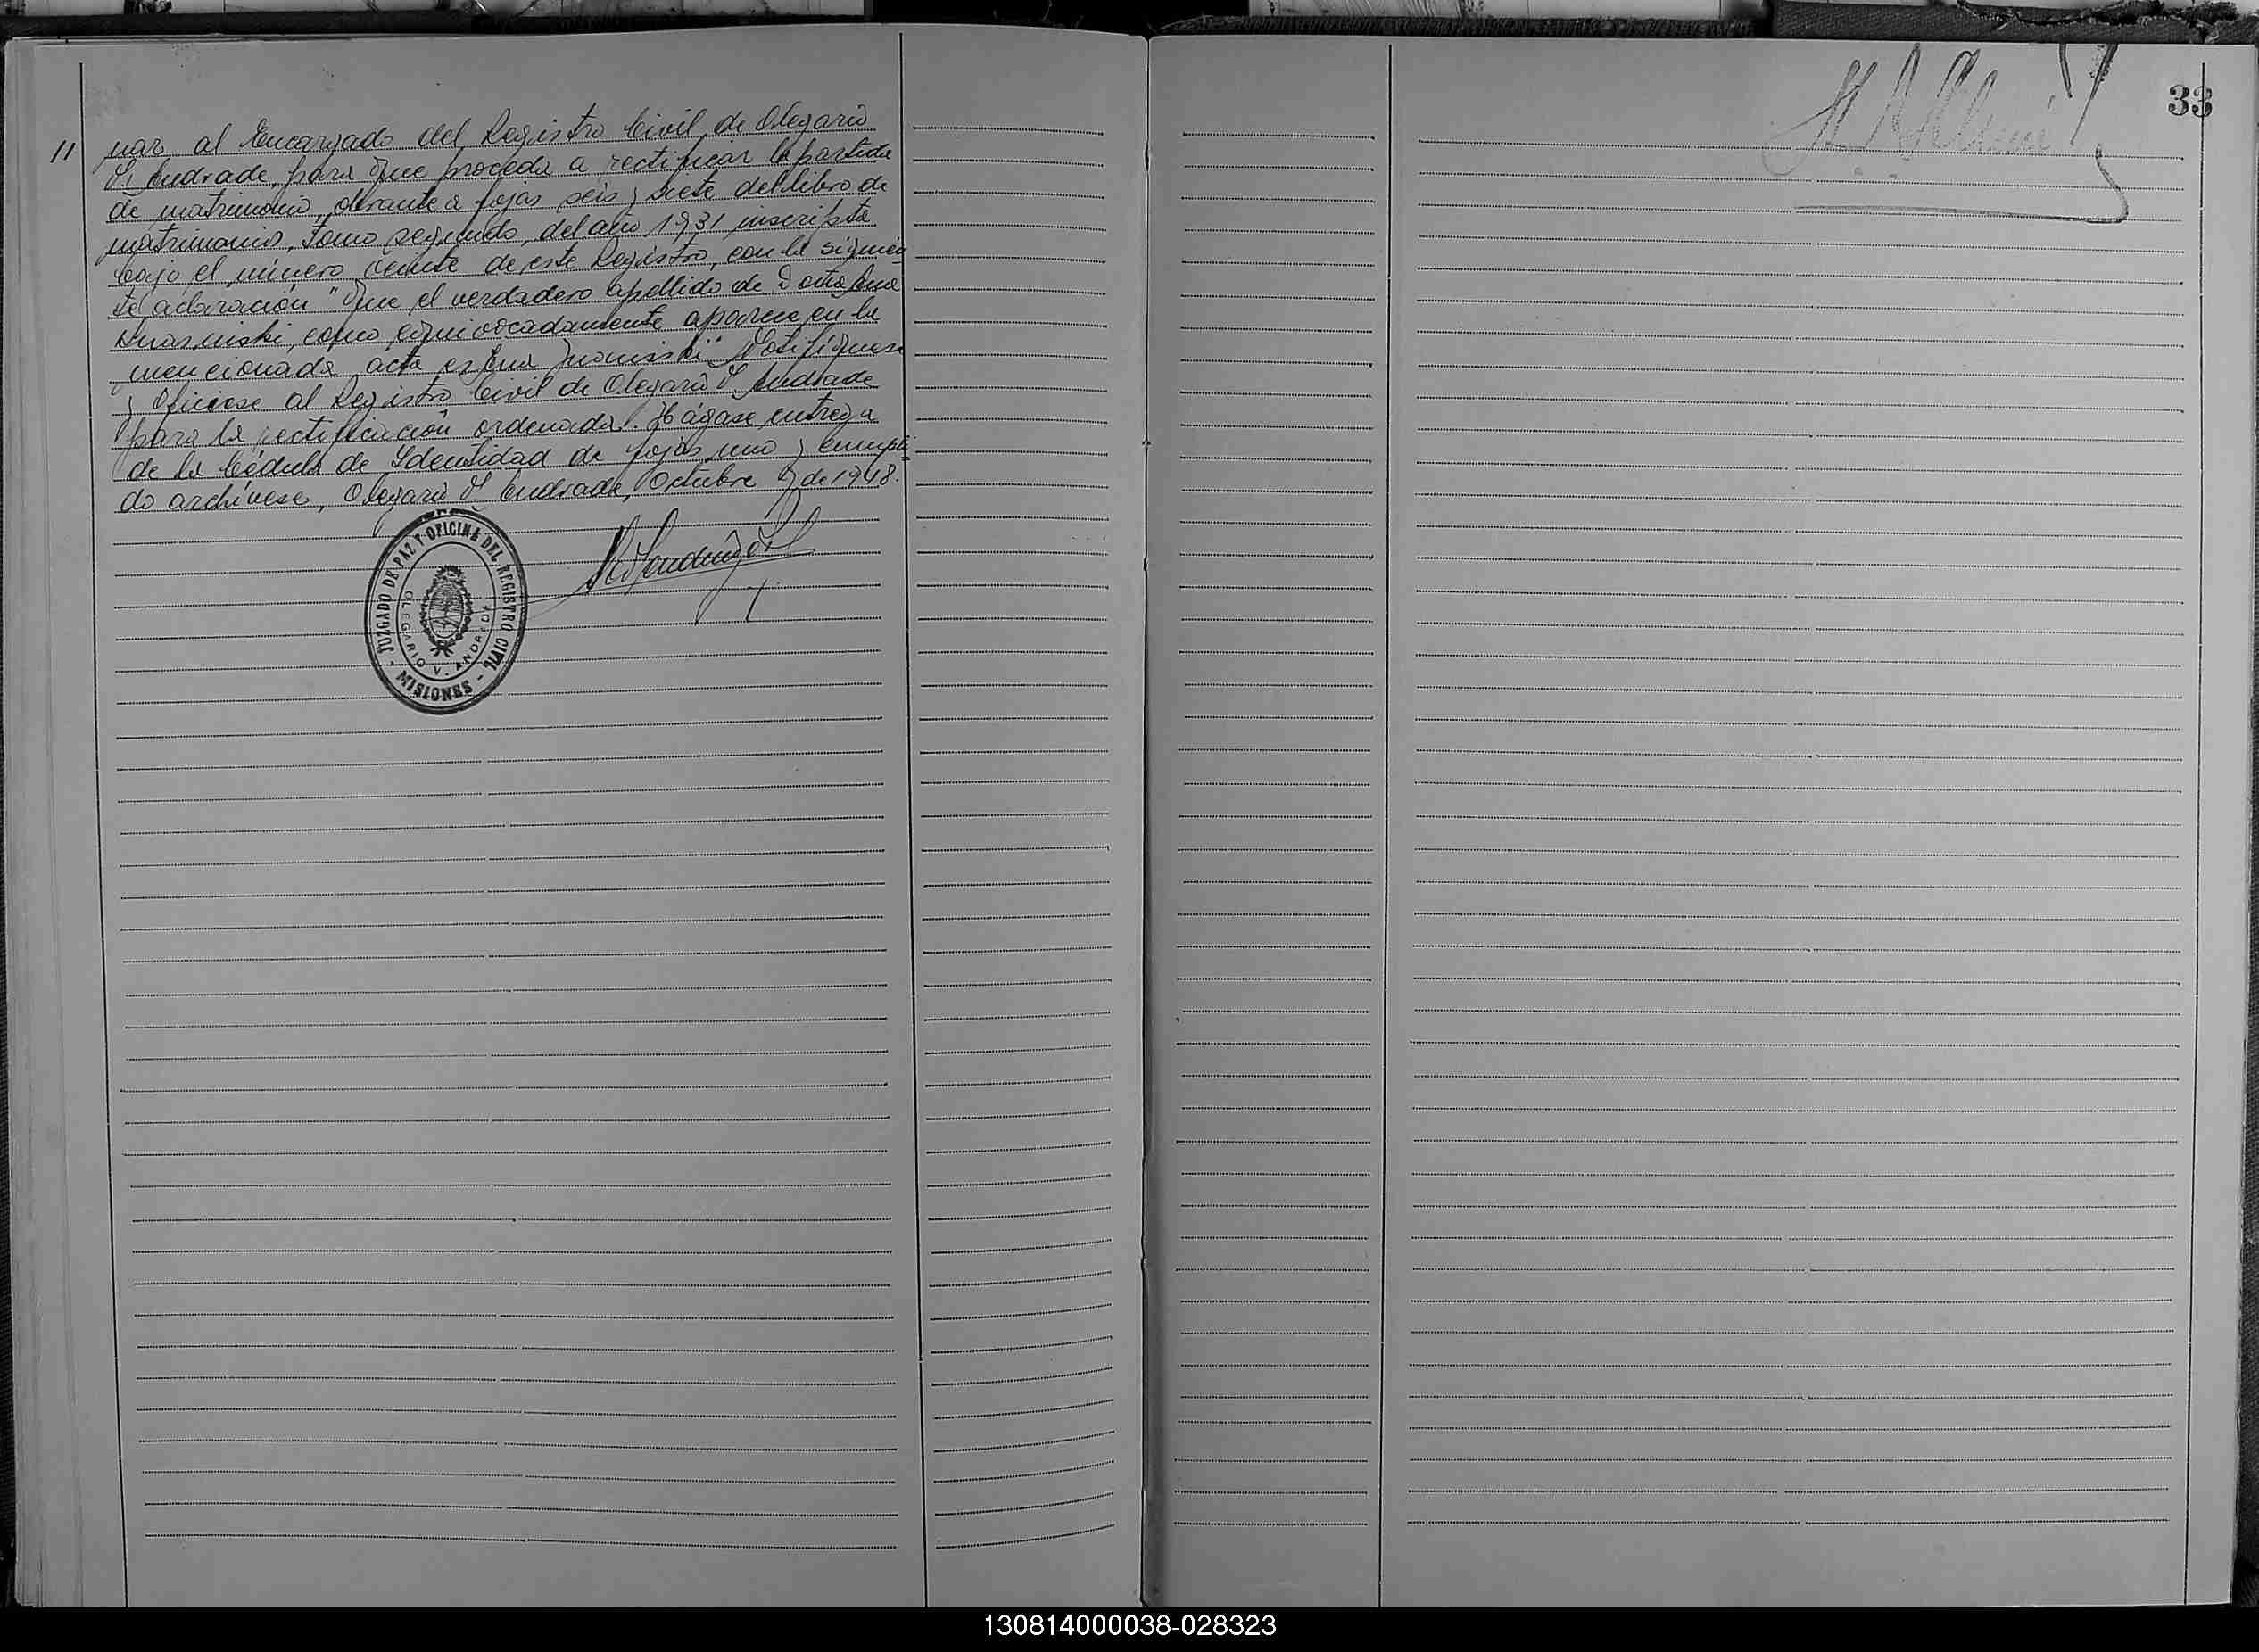 11
nar al Encargado del Registro Civil de Olegario
V. Andrade, para que proceda a rectificar la partida
de matrimonio, obrante a fojas seis y siete del libro de
matrimonios, tomo segundo, del año 1931 inscripta
bajo el número veinte de este Registro, con la siguien
te aclaración "Que el verdadero apellido de Doña Ana
como equivocadamente aparece en la
mencionada acta es Ana Notifíquese
y Oficiese al Registro Civil de Olegario V. Andrade
para la rectificación ordenada. Hágase entrega
de la Cédula de Identidad de fojas uno y cumpli
do archívese, Olegario V. Andrade, Octubre de 1948.
JUZGADO DE PAZ Y OFICINA DEL REGISTRO CIVIL
OLEGARIO V. ANDRADE
- MISIONES -
33
130814000038-028323